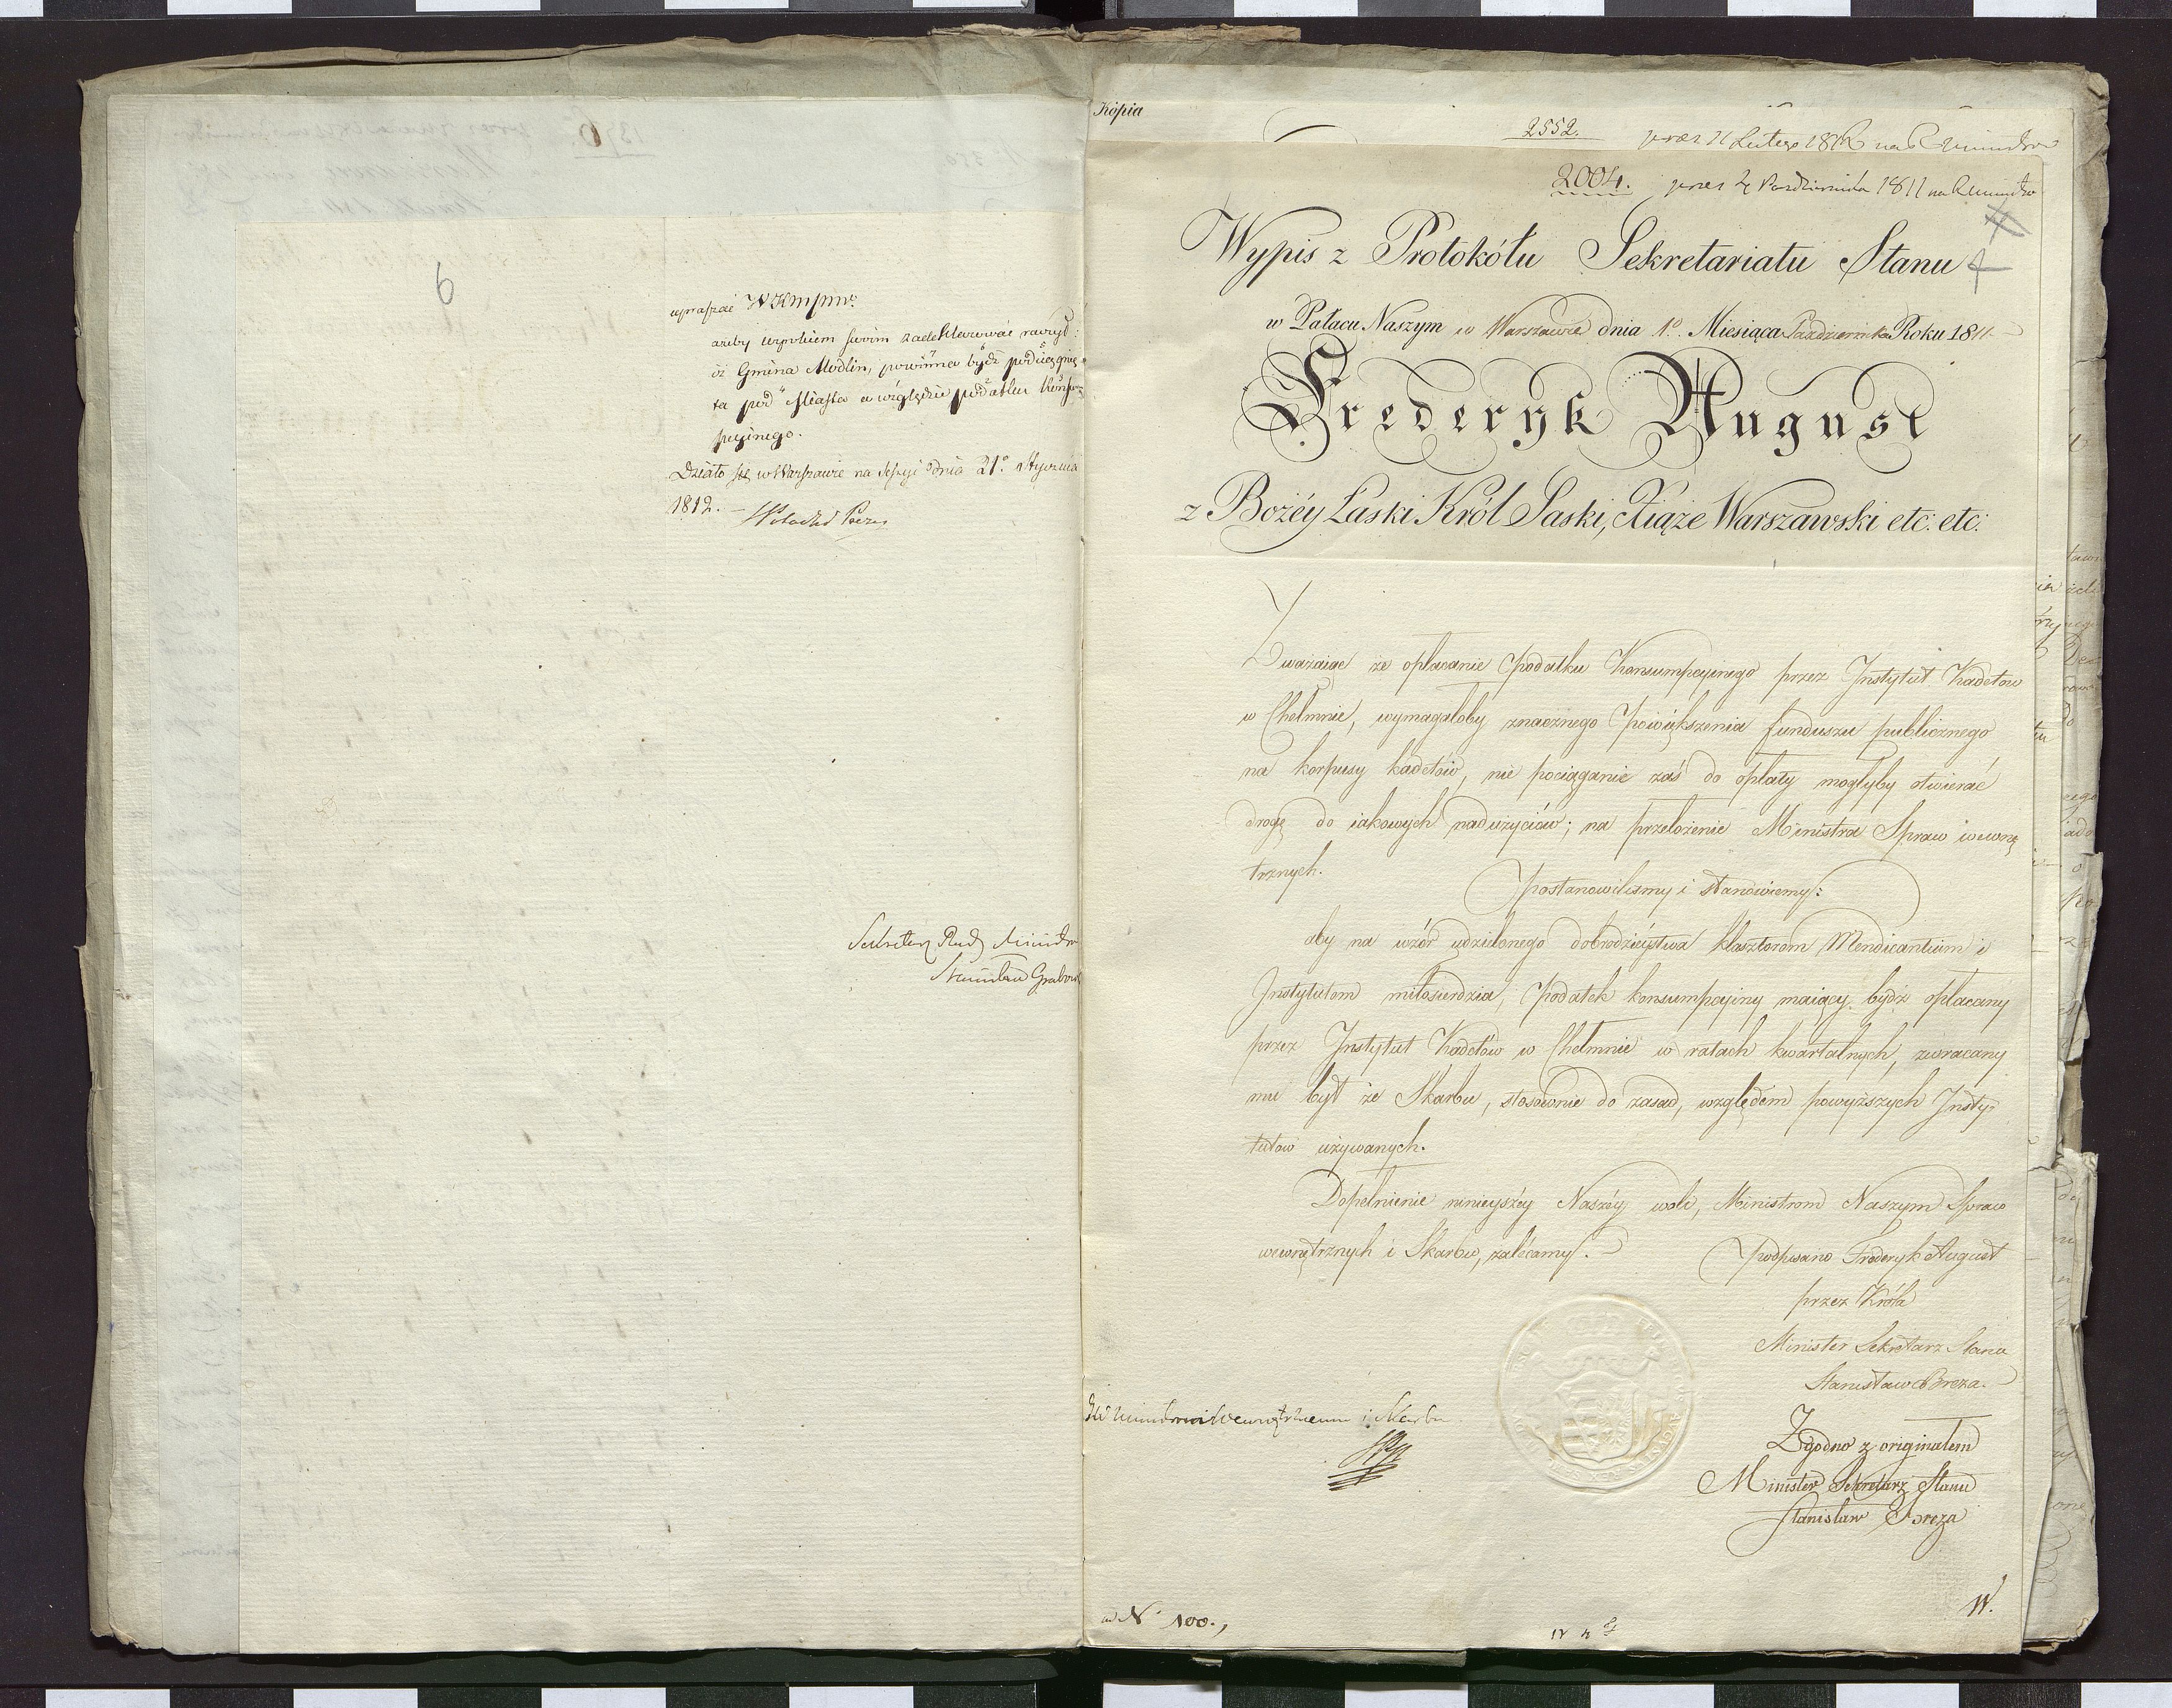 6
upraszać WKMpmć
ażeby wyrokiem swoim zadeklarować raczył:
iż Gmina Modlin, powinna bydź podciągnię-
ta pod Miasta w względzie podatku Konsum-
pcyinego.
Działo się w Warszawie na Sessyi dnia 21º Stycznia
1812. –
Sekretarz Rady Ministrów
Stanisław Grabowski
Kópia
2552. 1812 na R Ministrów
2004. prez 2 Października 1811 na R Ministrów
Wypis z Protokółu Sekretariatu Stanu
w Pałacu Naszym w Warszawie dnia 1º Miesiąca Października Roku 1811
Frederyk August
z Bożéy Łaski Król Saski, Xiąże Warszawski etc: etc:
Zważaiąc że opłacanie Podatku Konsumpcyinego przez Instytut Kadetow
w Chełmnie, wymagałoby znacznego Powiększenia funduszu publicznego
na korpusy kadetów, nie pociąganie zaś do opłaty mogłyby otwierać
drogę do iakowych nadużyciów; na przełożenie Ministra Spraw wewnę
trznych.
Postanowiliśmy i stanowiemy:
aby na wzór udzielonego dobrodzieystwa klasztorom Mendicantium i
Instytutom miłosierdzia, Podatek konsumpcyiny maiący bydź opłacany
przez Instytut Kadetów w Chełmnie w ratach kwartalnych, zwracany
mu był ze Skarbu, stosownie do zasad, względem powyższych Insty-
tutow używanych.
Dopełnienie ninieyszéy Naszéy woli, Ministrom Naszym Spraw
wewnętrznych i Skarbu, zalecamy.
Podpisano Frederyk August
przez Króla
Minister Sekretarz Stanu
Stanisław Breza.
Zgodno z originałem
Minister Sekretarz Stanu
Stanisław Breza
Wewnętrznemu i Skarbu
ad N 100.,
W.